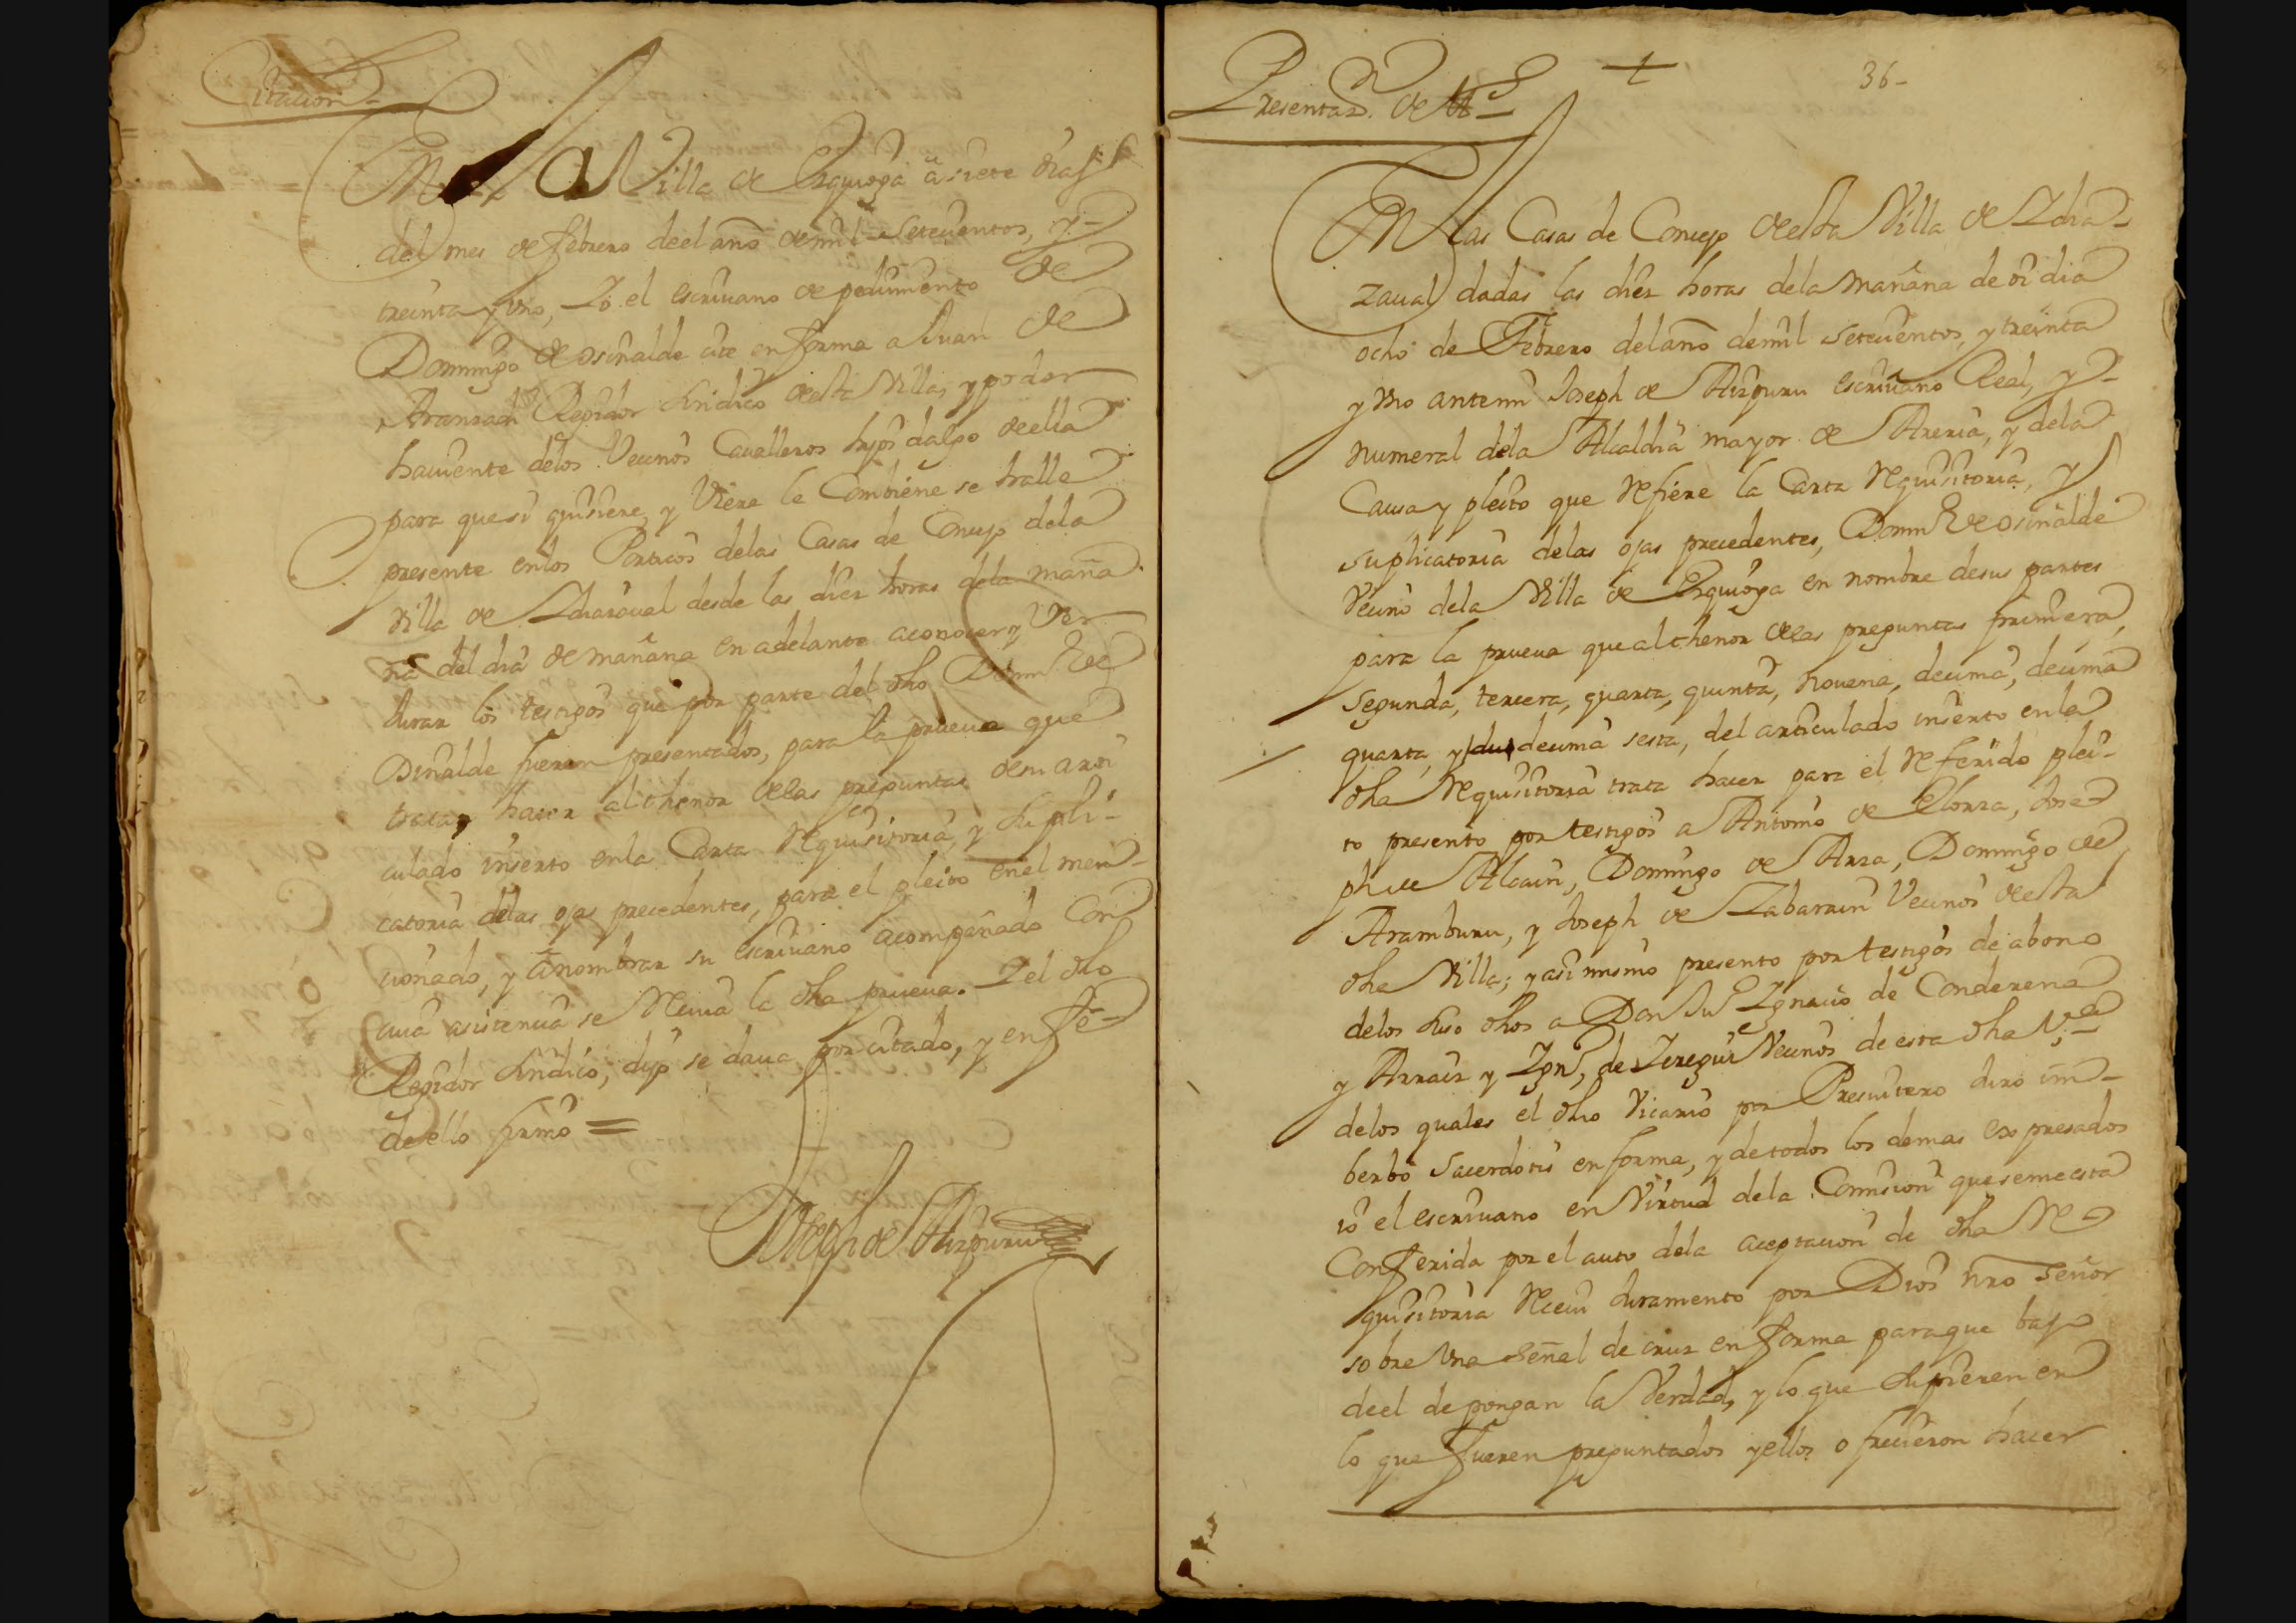 Citacion
En la Villa de Ezquioga a siete dias
del mes de febrero de el año de mil setecientos, y
treinta y uno, Yo el escriuano de pedimiento de
Domingo de osinalde cite en forma a Juan de
Aranzadi Regidor sindico de esta Villa, y poder
hauiente de los Vecinos Caualleros hijos dalgo de ella
para que si quisiere, y Viere le Combiene se halle
presente en los Porticos de las Casas de Concejo de la
Villa de Ydiazaual desde las diez horas de la maña
na del dia de mañana en adelante a conocer y Ver
Jurar los testigos que por parte del dho Domin de
Osinalde fueren presentados, para la prueua que
trata hacer al thenor de las preguntas de m arti
culado inserto en la Carta Requisitoria, y supli-
catoria de las ojas precedentes, para el pleito en el men-
cionado, y a nombrar su escriuano acompañado Con
cuia asistencia se Reciua la dha prueua. Y el dho
Regidor sindico, dijo se daua por citado, y en fe
de ello firmo =
Joseph de Aizpuru
Presentaz.n de tt.s
+
36-
En las Casas de Concejo de esta Villa de Ydia-
zaual dadas las diez horas de la mañana de oi dia
ocho de Febrero del año de mil setecientos, y treinta
y uno ante mi Joseph de Aizpuru escriuano Real, y
numeral de la Alcaldia mayor de Areria, y de la
Causa y pleito que Refiere la Carta Requisitoria, y
suplicatoria de las ojas precedentes, Domin de osinalde
Vecino de la Villa de Ezquioga en nombre de sus partes
para la prueua que al thenor de las preguntas primera,
segunda, tercera, quarta, quinta, nouena, decima, decima
quarta, y decima sesta, del articulado inserto en la
dha Requisitoria trata hacer para el Referido plei-
to presento por testigos a Antonio de Elorza, Jose-
ph de Alcain, Domingo de Arza, Domingo de
Aramburu, y Joseph de Zabarain Vecinos de esta
dha Villa; y asi mismo presento por testigos de abono
de los suso dhos a Don Ju Ygnacio de Conderena
y Arraiz y Ygn, de Yeregui Vecinos de esta dha V.a
de los quales el dho Vicario por Presuitero Juro im-
berbo Sacerdotis en forma, y de todos los demas expresados
io el escriuano en Virtud de la Comision que se me esta
Conferida por el auto de la aceptacion de dha Re
quisitoria Reciui Juramento por Dios nro señor
sobre Una señal de cruz en forma para que bajo
de el depongan la Verdad, y lo que supieren en
lo que fueren preguntados y ellos ofrecieron hacer